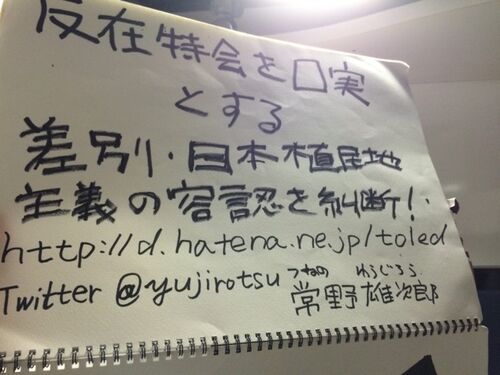 反在特会を口実
とする
差別・日本植民地
主義の容認を糾断!
http://d.hatena.ne.jp/toled
Twitter @yujirotsu
つねの ゆうじろう
常野雄次郎